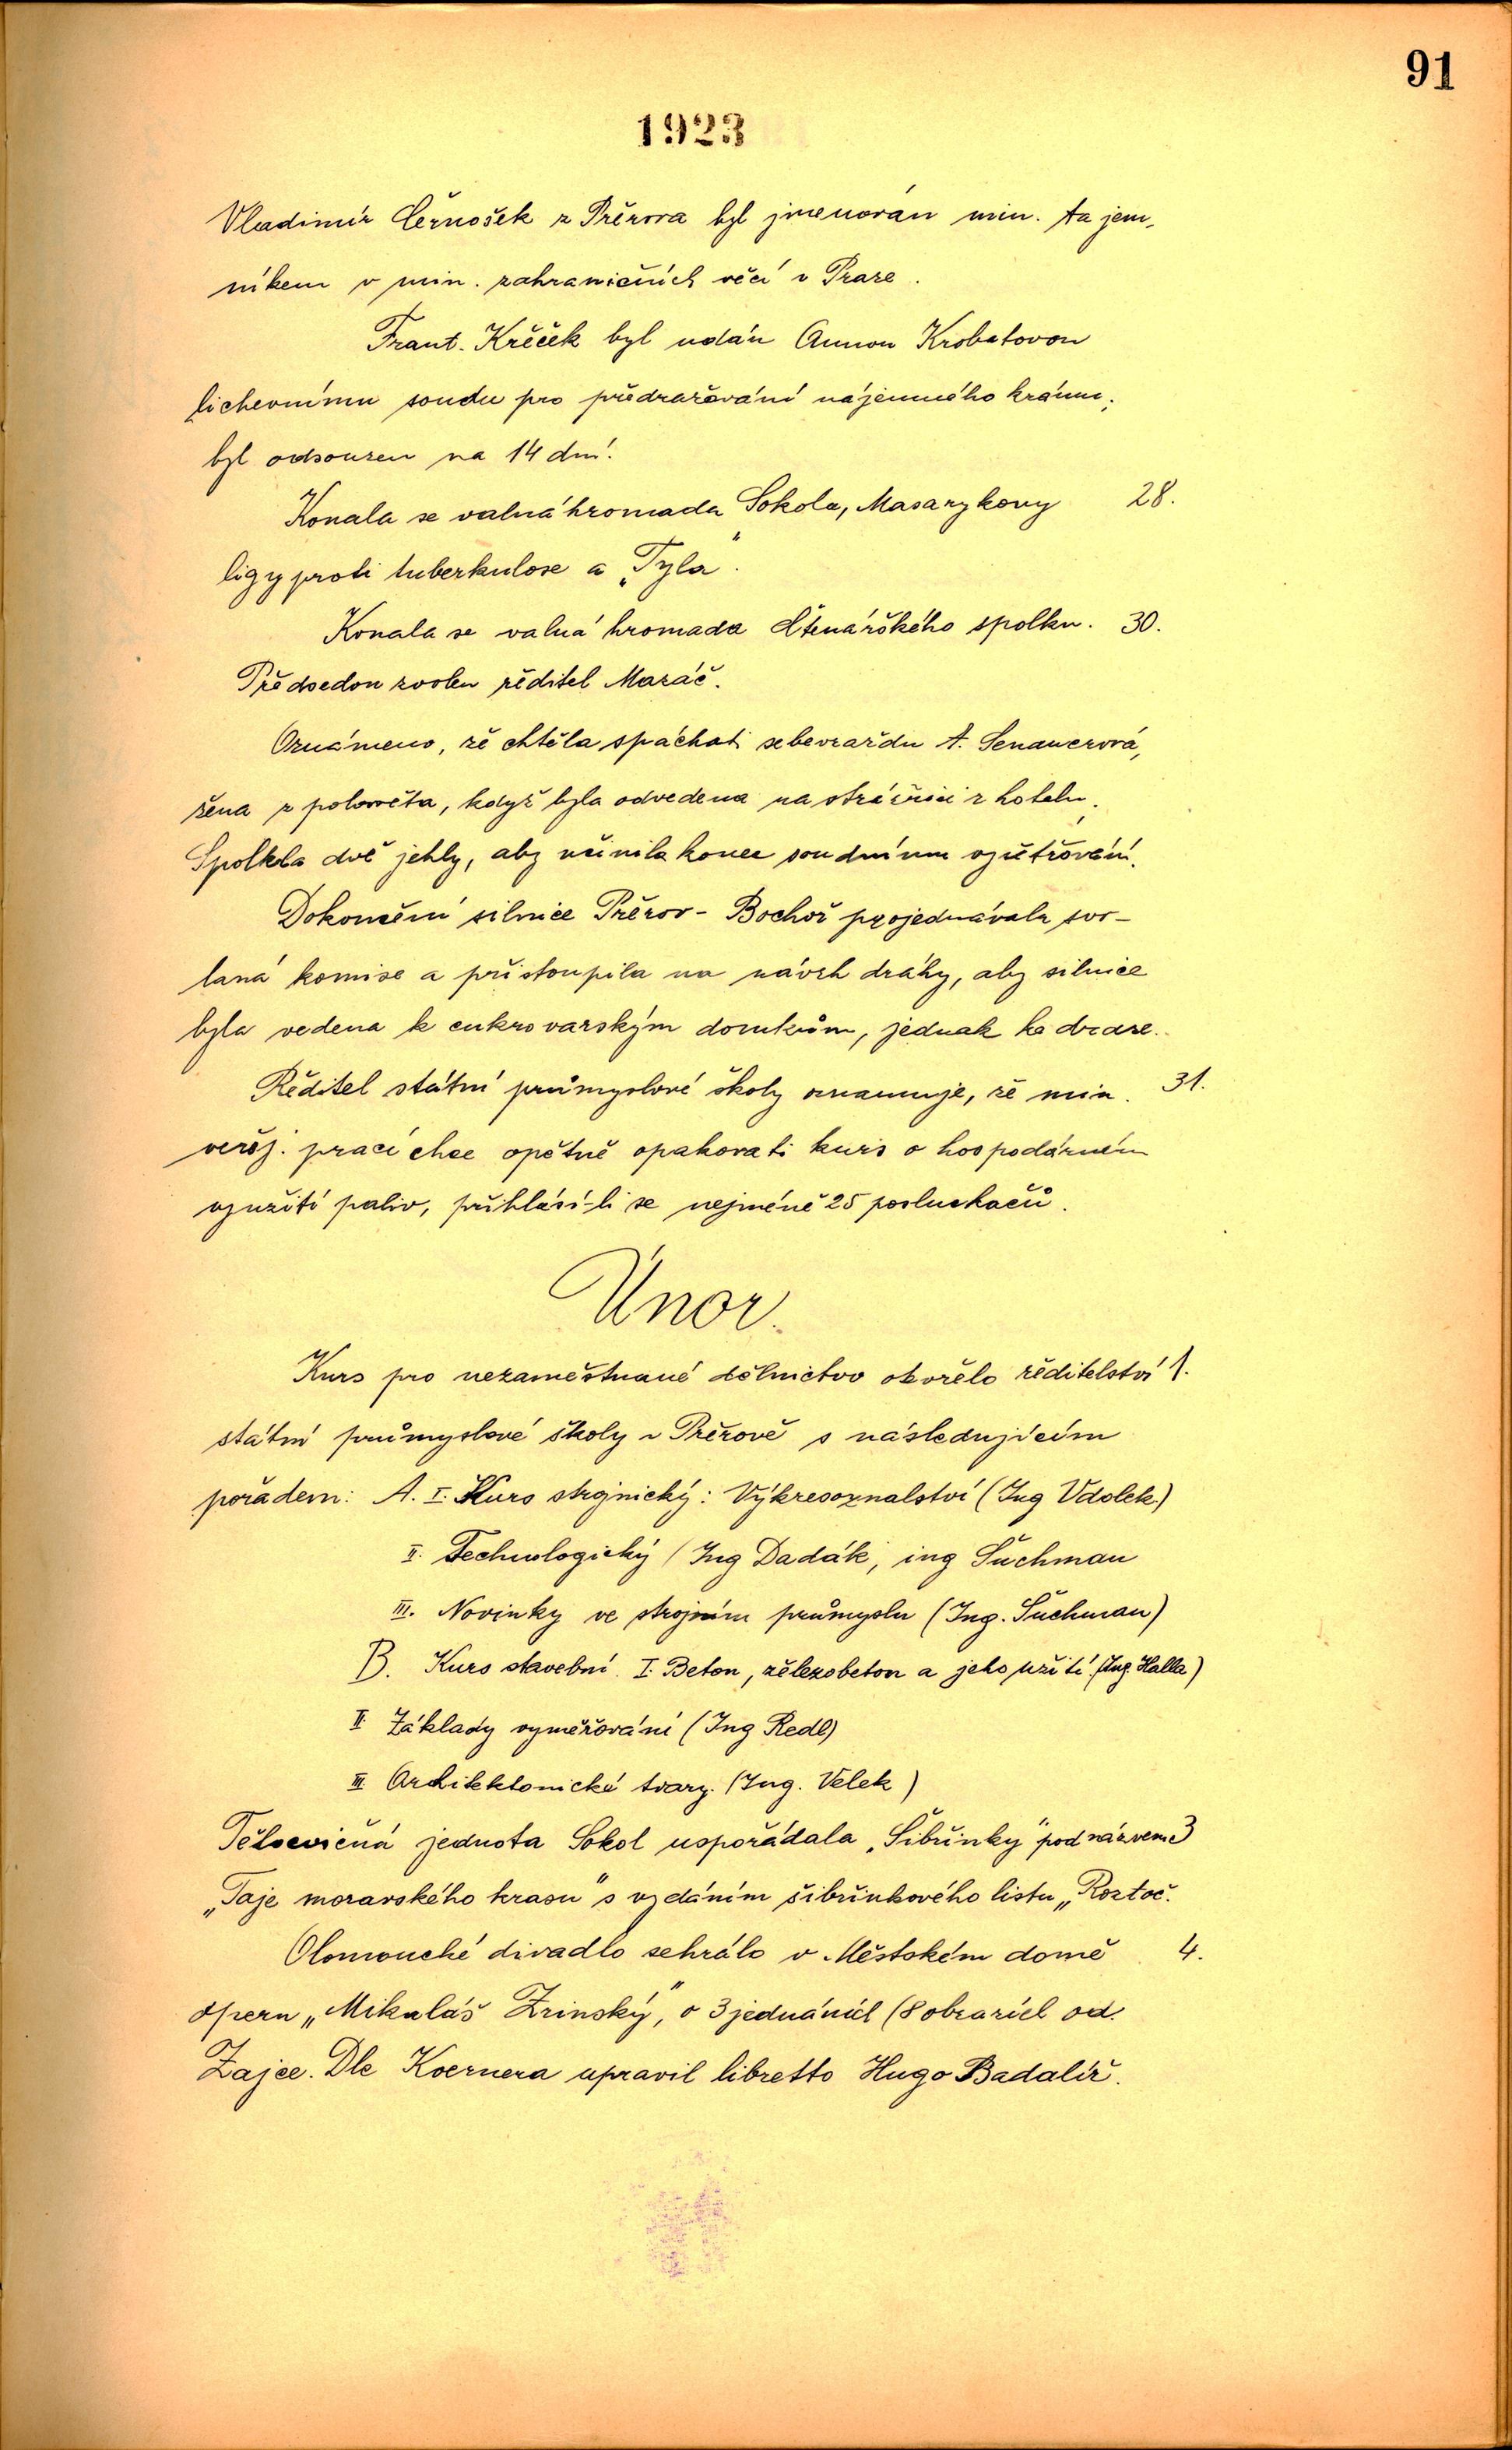 91
1923
Vladimír Černošek z Přerova byl jmenován min. tajem-
níkem v min. zahraničních věcí v Praze.
Frant. Křeček byl udán Annou Krobatovou
lichevnímu soudu pro předražování nájemného krámu;
byl odsouzen na 14 dní.
Konala se valná hromada Sokola, Masarykovy 28.
ligy proti tuberkulose a „Tyla“.
Konala se valná hromada čtenářského spolku. 30.
Předsedou zvolen ředitel Mazáč.
Oznámeno, že chtěla spáchati sebevraždu A. Senauerová,
žena z polosvěta, když byla odvedena na strážnici z hotelu.
Spolkla dvě jehly, aby učinila konec soudnímu vyšetřování.
Dokončení silnice Přerov - Bochoř projednávala svo-
laná komise a přistoupila na návrh dráhy, aby silnice
byla vedena k cukrovarským domkům, jednak ke dráze.
Ředitel státní průmyslové školy oznamuje, že min. 31.
veřej. prací chce opětně opakovati kurs o hospodárném
využití paliv, přihlásí-li se nejméně 25 posluchačů.
Únor.
Kurs pro nezaměstnané dělnictvo otevřelo ředitelství 1.
státní průmyslové školy v Přerově s následujícím
pořadem: A. I. Kurs strojnický: Výkresoznalství (Ing Vdolek)
II. Technologický (Ing Dadák, ing Šuchman
III. Novinky ve strojním průmyslu (Ing. Šuchman)
B. Kurs stavební. I. Beton, železobeton a jeho užití. (Ing. Halla)
II. Základy vyměřování (Ing Redl)
III Architektonické tvary. (Ing. Velek)
Tělocvičná jednota Sokol uspořádala „Šibřinky“ pod názvem 3
„Taje moravského krasu“ s vydáním šibřinkového listu „Roztoč.
Olomoucké divadlo sehrálo v Městském domě 4.
operu „Mikuláš Zrinský“, o 3 jednáních (8 obrazích od.
Zajce. Dle Koernera upravil libretto Hugo Badalíř.